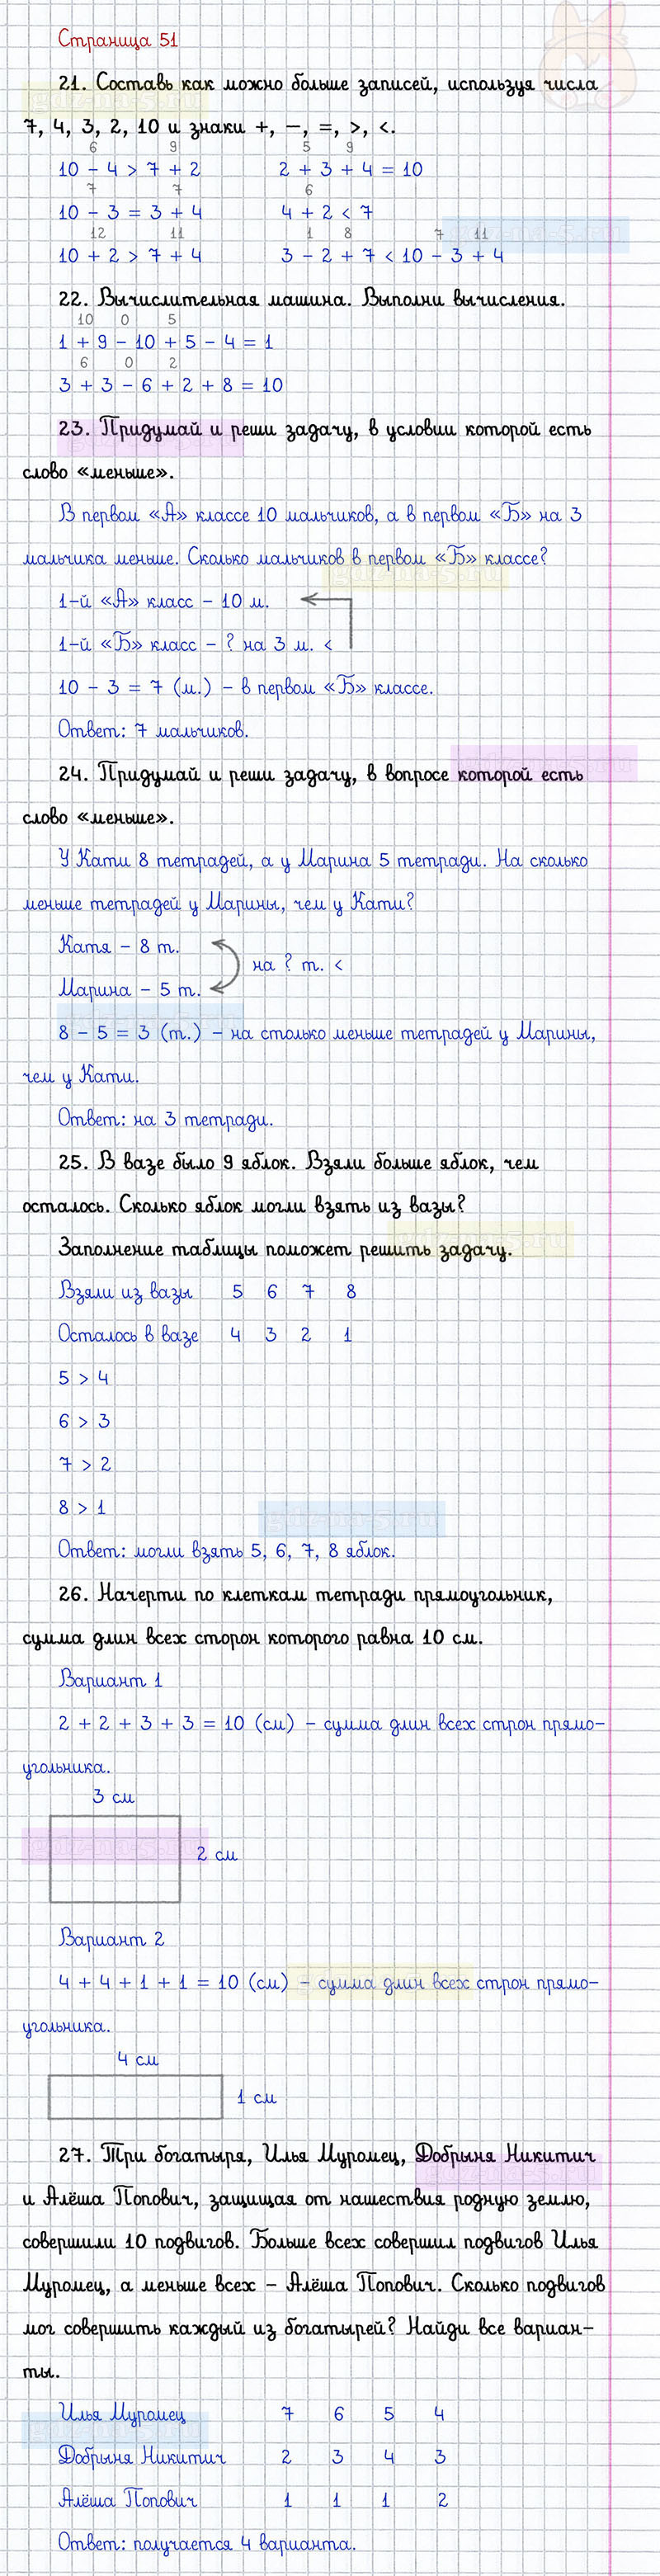 Страница 51
21. Составь как можно больше записей, используя числа
7, 4, 3, 2, 10 и знаки +, −, =, >, <.
6 9 5 9
10 − 4 > 7 + 2 2 + 3 + 4 = 10
7 7 6
10 − 3 = 3 + 4 4 + 2 < 7
12 11 1 8 7 11
10 + 2 > 7 + 4 3 − 2 + 7 < 10 − 3 + 4
22. Вычислительная машина. Выполни вычисления.
10 0 5
1 + 9 − 10 + 5 − 4 = 1
6 0 2
3 + 3 − 6 + 2 + 8 = 10
23. Придумай и реши задачу, в условии которой есть
слово «меньше».
В первом «А» классе 10 мальчиков, а в первом «Б» на 3
мальчика меньше. Сколько мальчиков в первом «Б» классе?
1-й «А» класс – 10 м.
1-й «Б» класс – ? на 3 м. <
10 − 3 = 7 (м.) – в первом «Б» классе.
Ответ: 7 мальчиков.
24. Придумай и реши задачу, в вопросе которой есть
слово «меньше».
У Кати 8 тетрадей, а у Марина 5 тетради. На сколько
меньше тетрадей у Марины, чем у Кати?
Катя – 8 т.
на ? т. <
Марина – 5 т.
8 − 5 = 3 (т.) – на столько меньше тетрадей у Марины,
чем у Кати.
Ответ: на 3 тетради.
25. В вазе было 9 яблок. Взяли больше яблок, чем
осталось. Сколько яблок могли взять из вазы?
Заполнение таблицы поможет решить задачу.
Взяли из вазы 5 6 7 8
Осталось в вазе 4 3 2 1
5 > 4
6 > 3
7 > 2
8 > 1
Ответ: могли взять 5, 6, 7, 8 яблок.
26. Начерти по клеткам тетради прямоугольник,
сумма длин всех сторон которого равна 10 см.
Вариант 1
2 + 2 + 3 + 3 = 10 (см) – сумма длин всех строн прямо-
угольника.
3 см
2 см
Вариант 2
4 + 4 + 1 + 1 = 10 (см) – сумма длин всех строн прямо-
угольника.
4 см
1 см
27. Три богатыря, Илья Муромец, Добрыня Никитич
и Алёша Попович, защищая от нашествия родную землю,
совершили 10 подвигов. Больше всех совершил подвигов Илья
Муромец, а меньше всех – Алёша Попович. Сколько подвигов
мог совершить каждый из богатырей? Найди все вариан-
ты.
Илья Муромец 7 6 5 4
Добрыня Никитич 2 3 4 3
Алёша Попович 1 1 1 2
Ответ: получается 4 варианта.